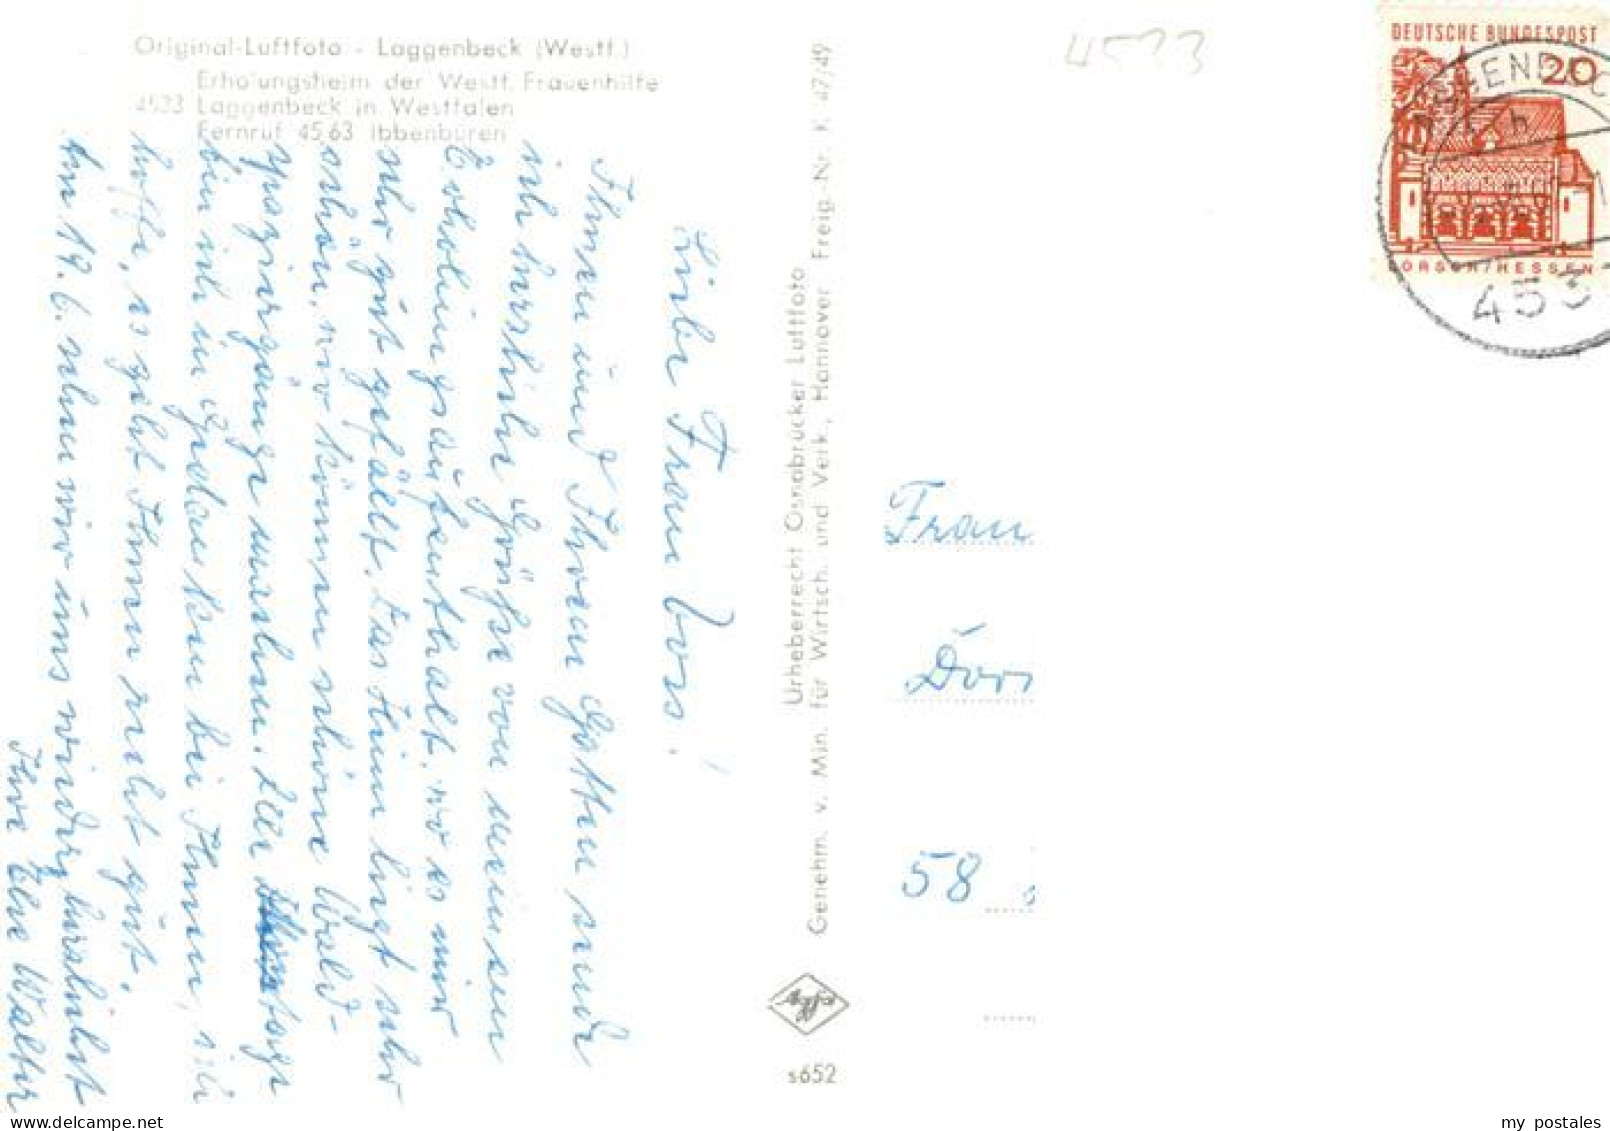 Original-Luftfoto - Laggenbeck (Westf.)
Erholungsheim der Westf. Frauenhilfe
4533 Laggenbeck in Westfalen
Fernruf 45 63 Ibbenbüren
Liebe Frau Voss!
Ihnen und Ihrem Gatten sende
ich herzliche Grüße von meinem
Erholungsaufenthalt, wo es mir
sehr gut gefällt. Das Heim liegt sehr
schön, wir können schöne Wald-
spaziergänge machen. Alle Tage
bin ich in Gedanken bei Ihnen, ich
hoffe, es geht Ihnen recht gut.
Am 19. 6. sehen wir uns wieder, herzlichst
Ihre Else Walter
Urheberrecht Osnabrücker Luftfoto
Genehm. v. Min. für Wirtsch. und Verk., Hannover Freig.-Nr. K 47/49
s652
4533
DEUTSCHE BUNDESPOST
20
LORSCH/HESSEN
453
Frau
58
my postales